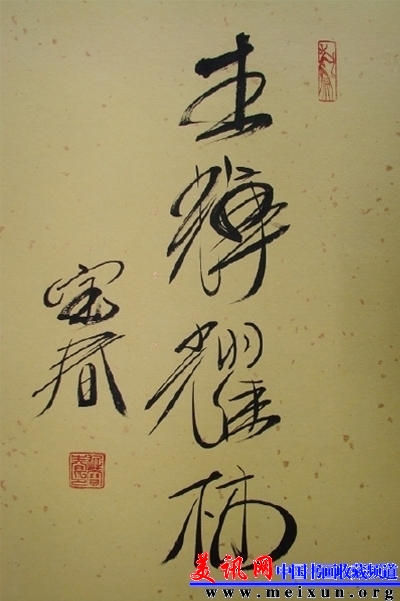 主輝耀
宝春
美讯网
中国书画收藏频道
www.meixun.org